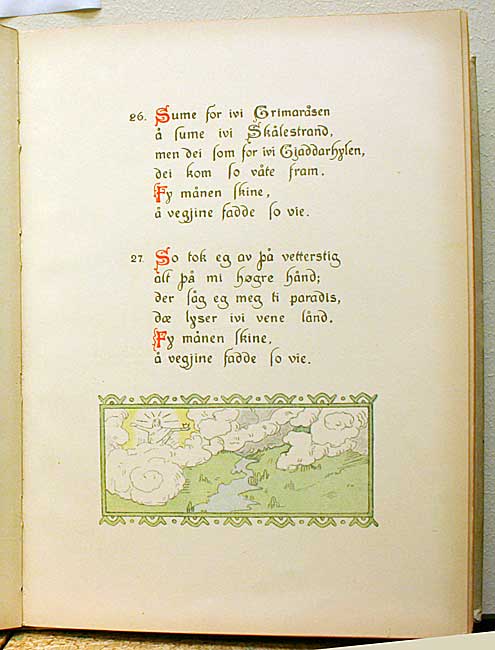 26. Sume for ivi Grimaråsen
å sume ivi Skålestrand,
men dei som for ivi Gjaddarhylen,
dei kom so våte fram.
Fy månen skine,
å vegjine fadde so vie.
27. So tok eg av på vetterstig
alt på mi høgre hånd;
der såg eg meg ti paradis,
dæ lyser ivi vene lånd.
Fy månen skine,
å vegjine fadde so vie.